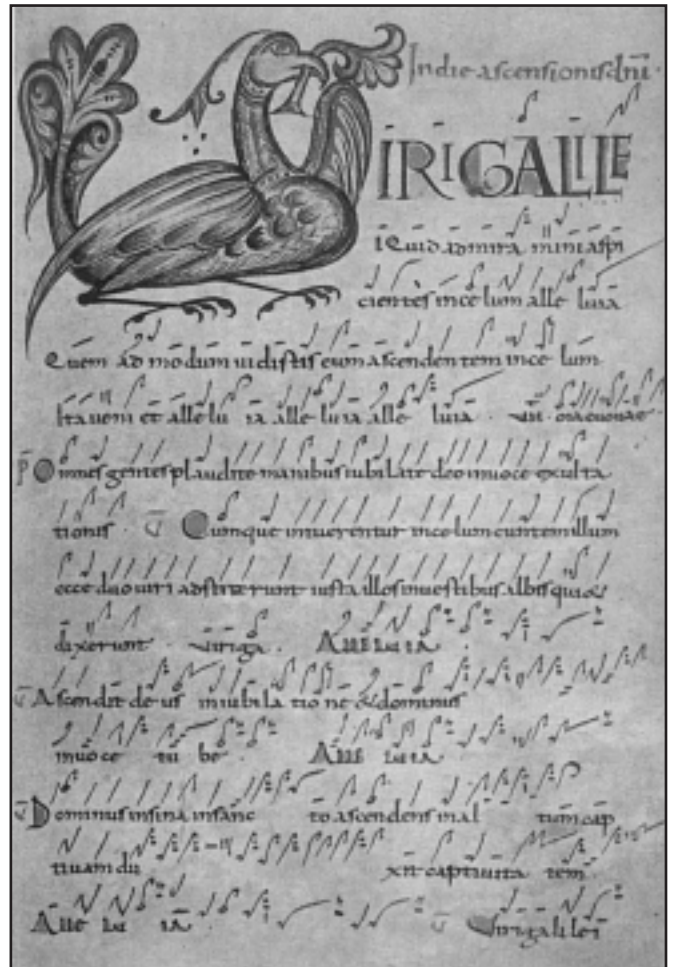 In die ascensionis dni.
VIRI GALILE
i Quid admiramini aspi
cientes in celum alle luia
Quem ad modum uidistis eum ascendentem in ce lum
Ita ueni et alle lu ia alle luia alle luia
Omnes gentes plaudite manibus iubilate deo in uoce exulta
tionis. Cumque intuerentur in celum euntem illum
ecce duo uiri adstiterunt iuxta illos in uestibus albis qui &
dixerunt. Viri ga. Alle lu ia.
Ascendit de us in iubila tio ne & dominus
in uoce tu be. Alle lu ia
Dominus in sina in sanc to ascendens in al tum cap
tiuam du xit captiuita tem
Alle lu ia Viri galilei